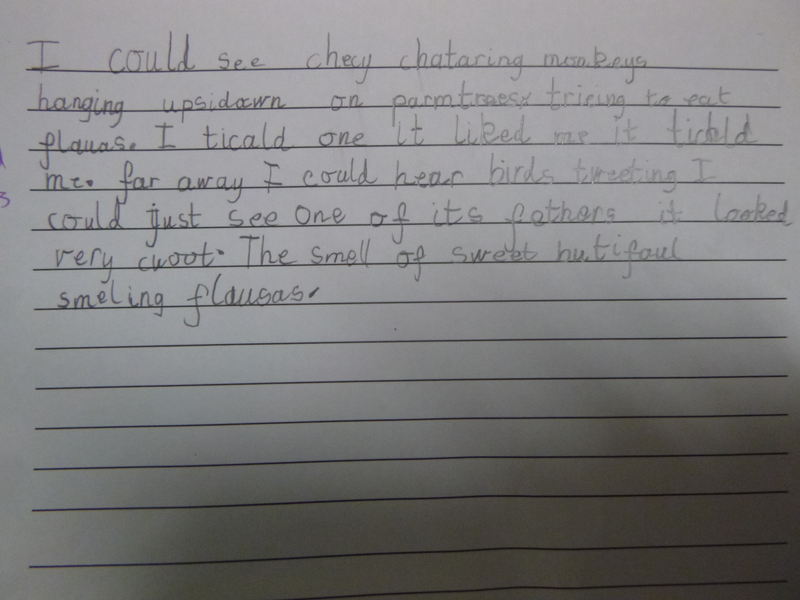 I could see checy chataring monkeys
hanging upsidawn on parmtraes tricing to eat
flauas. I ticald one it liked me it tickld
me. far away I could hear birds tweeting I
could just see one of its fethers it looked
very cwoot. The smell of sweet butifaul
smeling flausas.